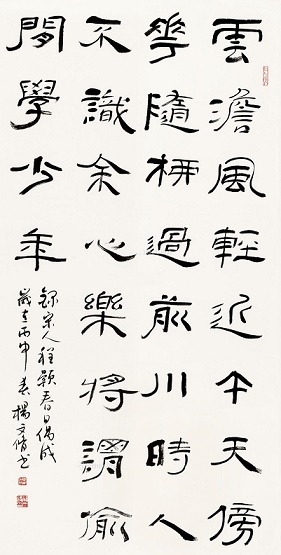 雲澹風輕近午天傍
華隨柳過前川時人
不識余心樂將謂偷
閒學少年
錄宋人程顥春日偶成
歲在丙申春楊文